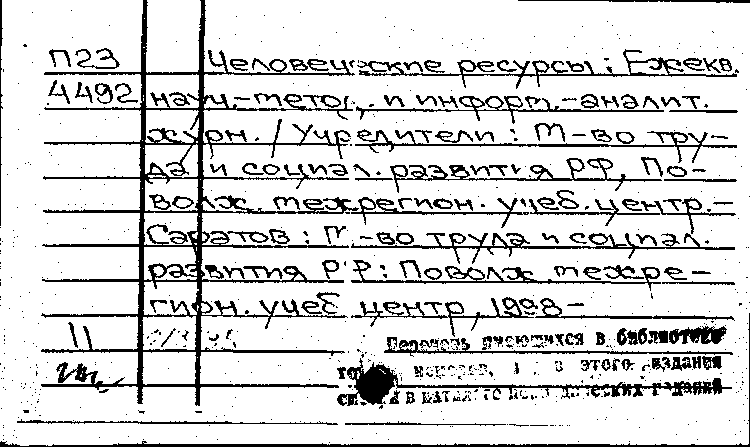 П23 Человеческие ресурсы: Ежекв.
4492 науч.-метод. и информ.-аналит.
журн. / Учредители: М-во тру-
да и социал. развития РФ, По-
волж. межрегион. учеб. центр.-
Саратов: М-во труда и социал.
развития РФ: Поволж. межре-
гион. учеб центр, 1998-
11
Перечень имеющихся в библиотеке
номеров, этого издания
в каталоге периодических изданий